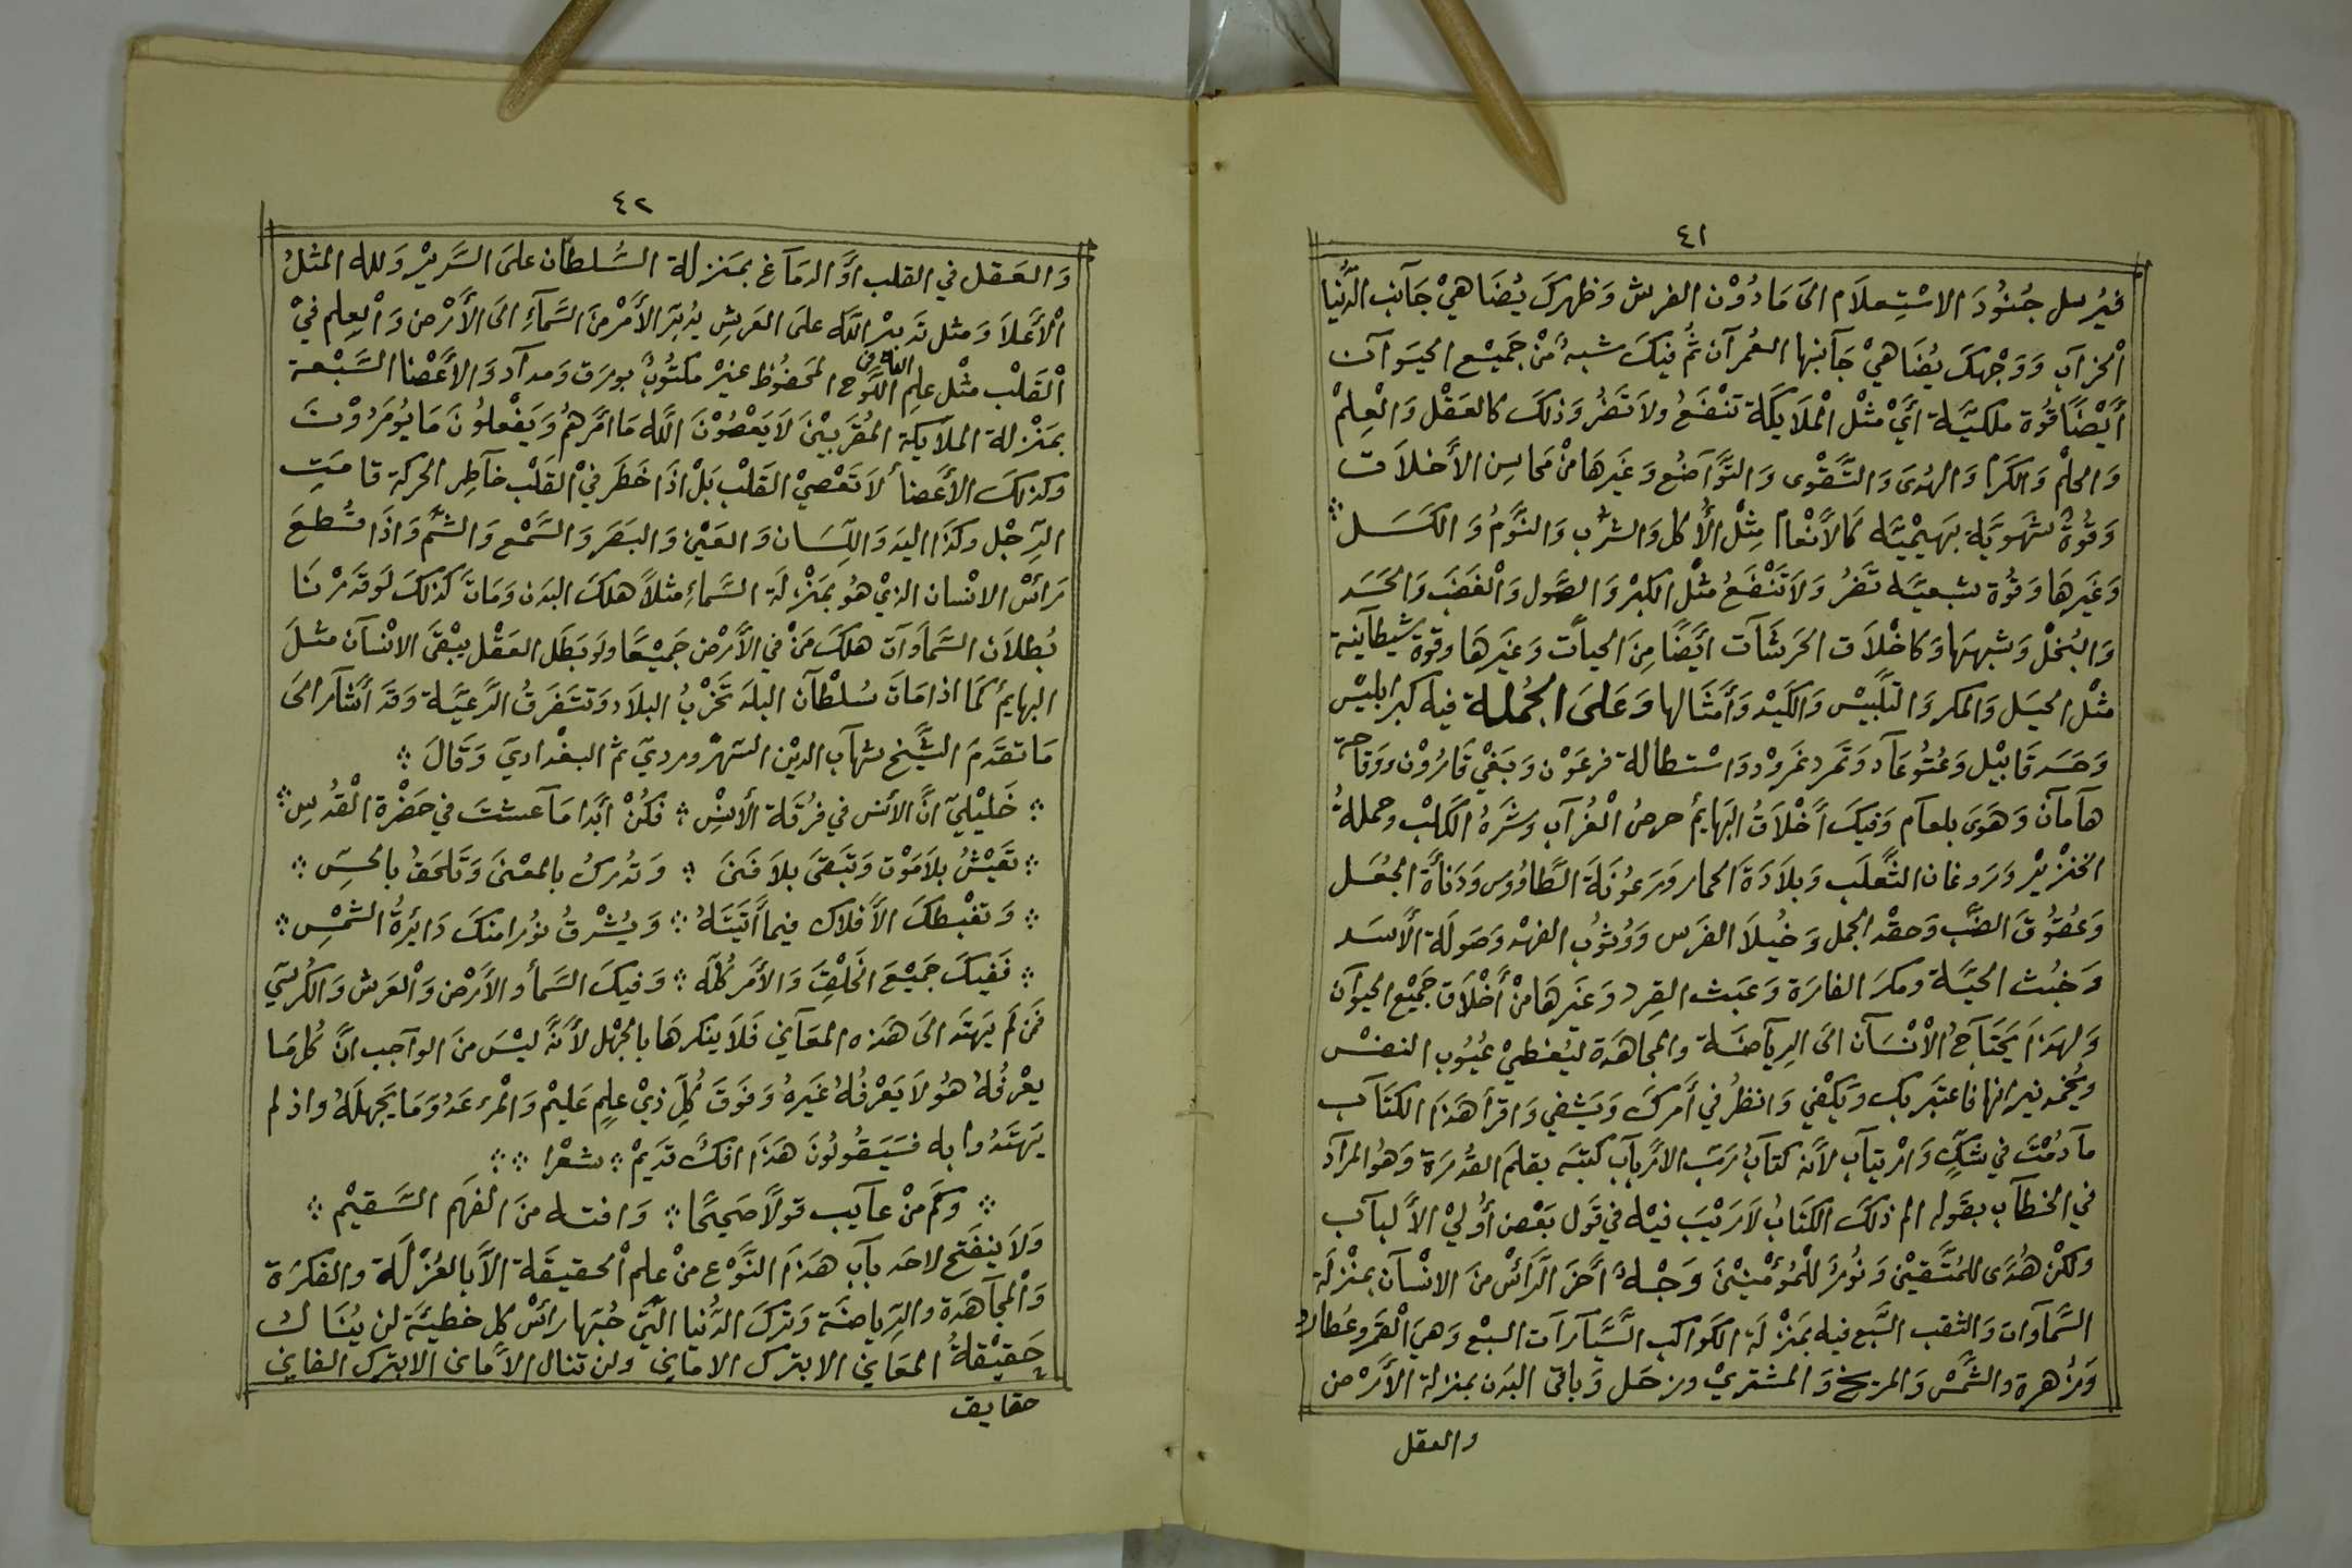 ٤١
فيُرسل جُنُودَ الاسْتِعلَام الىَ مَا دُوْن الفرش وَظهرك يُضَاهيْ جَآنب الدُّنيا
اْلخرآب وَوَجْهكَ يُضَاهيْ جَآنبها العُمرآن ثُم فيكَ شبهٌ منْ جَميْع الحيَوآن
أيْضًا قُوة ملكيَّـة ايْ مثْل اْلملَايكَة تنْفَعُ ولَا تَضُر وَذلكَ كالعَقْل وَالْعِلمْ
وَالحلْم وَالكَرَم وَالهُدىَ وَالتَّقْوى وَالتَّوَآضُع وَغَيرهَا منْ مَحاسِن الأَخلَاق
وَقُوةٌ شَهَويَّة بَهيْميَّه كالاَنْعام مِثْل الأَكل وَالشرْب وَالنَّومُ وَالكَسَـل
وَغَيرِهَا وَقُوة سَبعيَّه تَضرُ وَلَا تَنْفَعُ مثْل الكبْر وَالصَّول وَالْغضَبَ وَالحَسَد
وَالبُخلْ وَشبههَا وَكاخْلَاق الحَرشَآت ايَضًا مِنَ الحيآت وَغيَرهَا وقوة شيطآنية
مثْل الحيَل وَالمكر وَالتَلْبيَسْ وَالكَيْد وَأَمْثَالها وَعَلىَ الجُملـة فيك كبر ابليْس
وَحَسَد قَابيْل وَعُتُو عَآد وَتَمرد نمَروْد وَاسْتطالة فرعَوْن وَبَغْي قَارُوْن ووَقاحة
هآمآن وَهَوَى بلعآم وَفيكَ اَخْلَاقُ البَهايمُ حرصُ الْغُرآب وشَرَهُ الكَلْب وحملةُ
الخنْزيْر وَرَوغان الثَّعلَب وَبلَادَة الحمار ورَعُونَة الطَّاؤوس وَدَنأَة الجُعَـل
وَعُقُوق الضَبّ وَحقْد الجمل وَخُيلَا الفَرَس وَوُثوُب الفهْد وَصَولَة الاَسَـد
وَخُبُث الحيَّـة ومكرَ الفارَة وَعَبَث القِرد وَغيَرهَا منْ أَخْلَاق جَميْع الحيوآن
وَلهَذَا يَحْتَاجُ الْانْسَآن الىَ الرِيآضَـة والمجاهَدَة ليُغطيْ عُيُوب النفسْ
ويُخمد نيرانها فاعتَبَر بك وَيَكْفي وَانظُر في أَمركَ وَيَشْفي وَاقرأ هَذَا الكتَآب
مآدُمْتَ في شَكٍّ وَارْتيَآب لاَنه كتآبُ رَبّ الاَرْبآب كتبَه بقلَم القدُرَة وَهوُ المرآد
في الخطآب بقَوله الم ذلكَ الكتَابُ لَارَيْبَ فيْه في قَول بَعْض أُوليْ الاَلبآب
ولكنْ هُدًى للمُتَّقيْن وَنُورٌ للمُؤْمنيْنَ وَجْـهٌ اَخَر الرَأسْ منَ الانْسآن بمنْزلَة
السَّمآوآت وَالثقب السَّبع فيه بمَنْزلَة الكَواكب السَّيَآرَآت السبْع وَهيَ الْقمر وعُطارد
وَزُهرة والشَّمسْ وَالمريخ وَالمشتريْ ورخَـل وَبَاقى البَدَن بمنزلة الأَرْض
والعقل
٤٢
وَالعَـقل في القلب اوَ الدمَآغ بمَنزلة السُّلطآن علىَ السَّريْر وَلله المثلُ
اْلاَعلاَ وَمثل تَدبيْر اللَّه علىَ العَرش يُدَبّرَ الأَمْرَ منَ السَّمآءِ الىَ الأَرْض وَالْعِلم فيْ
اْلقَلبْ مثْل علِم اللَّوح المَحفُوظ غيْر مكتُوبٌ بورَق وَمدآد وَالأَعْضنا السَّبْعة
بمَنْزلة الملآيكة المُقرَبيْنَ لَا يَعْصُوْنَ اللَّه مَا امَرهُم وَيَفْعلُونَ مَا يُومَرُوْنَ
وكذلكَ الأَعضا لَا تَعْصيْ القَلْب بَلْ اذَا خَطَر فيْ القَلْب خآطِر الحركة قامَتِ
الرِّجْل وكَذَا اليَد وَاللِّسَان وَالعَيْن وَالبَصَر وَالسَّمْع وَالشَّم وَاذَا قُطعَ
رَأْسُ الانْسان الذيْ هُو بمَنْزلَة السَّماءِ مثلاً هلكَ البَدَن وَمَاتَ كذلكَ لَوقَدرْنَا
بُطلاَن السَّمآوآت هلكَ مَنْ في الأَرْض جَميْعًا ولَو بَطَل العَقْل يبْقىَ الانْسآن مثلَ
البهايمُ كمَا اذا مَاتَ سُلْطآن البلَد تَخْرَبُ البلاَد وَتتَفَرقُ الرَّعيَّة وَقَد أشَآر الىَ
مَا تقدَم الشَّيْخ شهَآب الديْن السّهرْورديَ ثم البغْداديَ وَقَالَ
خَليْليَ انَّ الأنس في فُرقَة الأنِسْ فكُنْ اَبَدا مَآعشتَ في حَضْرَة الْقُدسِ
تعَيْشُ بلاَمَوْت وَتبَقىَ بلاَ فَنىَ وَتُدركُ بالمعْنىَ وَتَلحَقُ بالحسِّ
وَتغْبطكَ الاَفلاك فيما أَتيَتَهُ وَيُشْرقُ نوُرا منكَ دَايَرةُ الشمْسِ
فَفيكَ جَميْعَ الخَلْقِ وَالأَمر كُلّه وَفيكَ السَمأ والأَرْض وَالْعَرش وَالكُرسيَ
فمَن لَم يَهتَد الىَ هَذه المَعآني فَلَا ينكرهَا بالجهْل لاَنَّهُ ليْسَ منَ الوآجب انَّ كُلمَا
يعْرفُهُ هُو لَا يَعْرفُهُ غَيَرهُ وَفوَقَ كُلِّ ذيْ علِمٍ عَليْم وَالْمرء عَدُو مَا يَجهلَهُ واذ لم
يَهتَدُوا به فسَيَقُولُونَ هَذَا افكٌ قدَيْم شعْرا
وكَم منْ عآيَب قوَلاً صَحيحًا وَافته منَ الفهَم السَّقيْم
وَلَا ينفَتحُ لاحَد بآبَ هَذَا النَّوْع منْ علِم اْلحقيقَة الاَّ بالعُزْلَة والفكرَة
وَالْمجآهَدَة والرِّياضَة وَتركَ الدُّنيا الَّتيَ حُبّها رائْس كل خَطيئَة لن يُنَـال
حَقيْقَةُ المعَاني الا بترك الاماني ولن تنال الاَماني الا بترك الفاني
حقايق